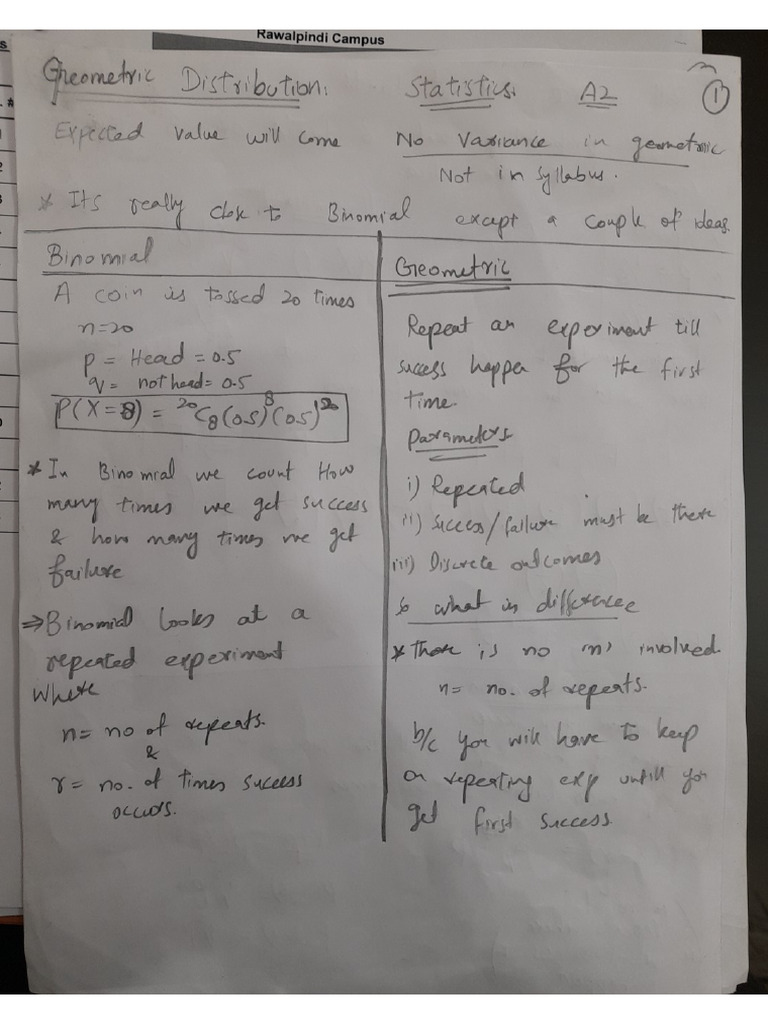 Rawalpindi Campus
Geometric Distribution: Statistics. A2 1
Expected value will come No Variance in geometric
Not in Syllabus.
* Its really close to Binomial except a couple of ideas.
Binomial
A coin is tossed 20 times
n=20
p = Head = 0.5
q = not head = 0.5
P(X=8) = ²⁰C₈(0.5)⁸(0.5)¹²
* In Binomial we count How
many times we get success
& how many times we get
failure
⇒ Binomial looks at a
repeated experiment
where
n = no of repeats.
&
r = no. of times success
occurs.
Geometric
Repeat an experiment till
success happen for the first
time.
Parameters.
i) Repeated
ii) Success/failure must be there
iii) Discrete outcomes
so what is difference
* There is no 'n' involved.
n = no. of repeats.
b/c you will have to keep
on repeating exp untill you
get first success.